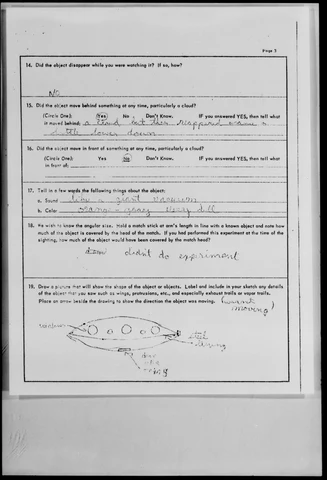 Page 3
14. Did the object disappear while you were watching it? If so, how?
NO
15. Did the object move behind something at any time, particularly a cloud?
(Circle One): Yes No Don't Know. IF you answered YES, then tell what
it moved behind: a cloud but then reappeared came a
little lower down
16. Did the object move in front of something at any time, particularly a cloud?
(Circle One): Yes No Don't Know. IF you answered YES, then tell what
in front of:
17. Tell in a few words the following things about the object:
a. Sound like a giant vacuum
b. Color orange - gray very dull
18. We wish to know the angular size. Hold a match stick at arm's length in line with a known object and note how
much of the object is covered by the head of the match. If you had performed this experiment at the time of the
sighting, how much of the object would have been covered by the match head?
didn't do experiment
19. Draw a picture that will show the shape of the object or objects. Label and include in your sketch any details
of the object that you saw such as wings, protrusions, etc., and especially exhaust trails or vapor trails.
Place an arrow beside the drawing to show the direction the object was moving. (wasn't
moving)